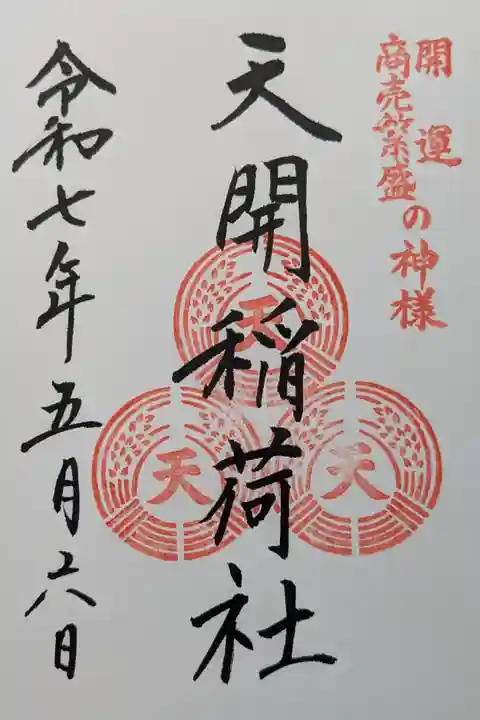 開運
商売繁盛
の神様
天開稲荷社
天
天
天
令和七年五月六日